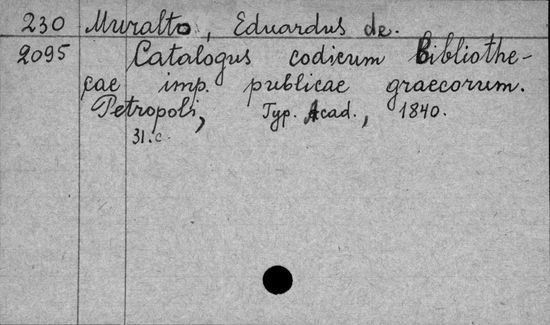 230 Muralto, Eduardus de.
2095 Catalogus codicum Bibliothe-
cae imp. publicae graecorum.
Petropoli, Typ. Acad., 1840.
31.c.